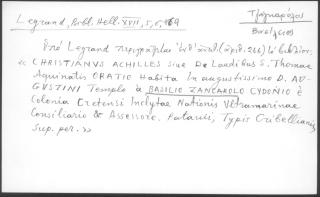 Legrand, Bibl. Hell. XVII, 5, σ. 169
Τζαγκαρόλος
Βασίλειος
Ὑπὸ Legrand περιγράφεται ἐν (ἀριθ. 266) τὸ βιβλίον:
« CHRISTIANUS ACHILLES siue De Laudibus S. Thomae
Aquinatis ORATIO Habita in augustissimo D. AU-
GUSTINI Templo à BASILIO ZANCAROLO CYDONIO è
Colonia Cretensi Inclytae Nationis Vltramarinae
Consiliario & Assessore. Patavii, Typis Cribellianis,
Sup. per. »